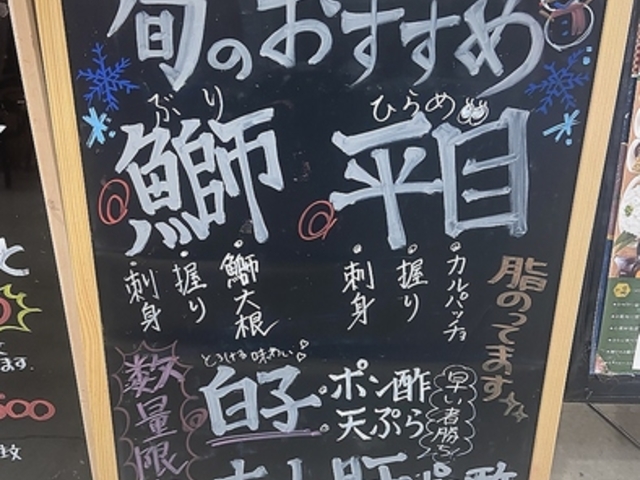 旬のおすすめ
ひらめ
平目
・カルパッチョ
・握り
・刺身
脂のってます
ぶり
鰤
・鰤大根
・握り
・刺身
数量限
とろける味わい
白子
・ポン酢
・天ぷら
早い者勝ち